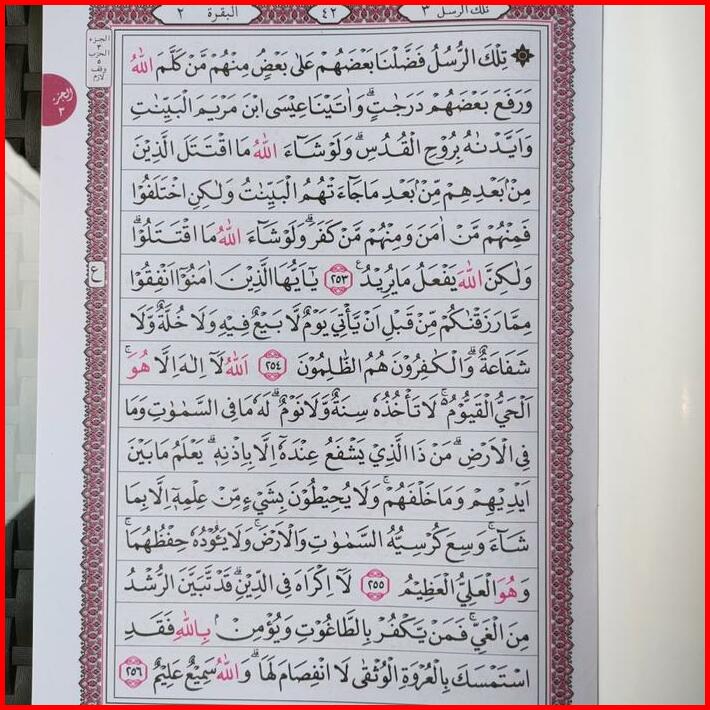 تلك الرسل ٣ ٤٢ البقرة ٢
الجزء
٣
الحزب
٥
وقف
لازم
الجزء
٣
تِلْكَ الرُّسُلُ فَضَّلْنَا بَعْضَهُمْ عَلٰى بَعْضٍۘ مِنْهُمْ مَّنْ كَلَّمَ اللّٰهُ
وَرَفَعَ بَعْضَهُمْ دَرَجٰتٍۗ وَاٰتَيْنَا عِيْسَى ابْنَ مَرْيَمَ الْبَيِّنٰتِ
وَاَيَّدْنٰهُ بِرُوْحِ الْقُدُسِۗ وَلَوْ شَاۤءَ اللّٰهُ مَا اقْتَتَلَ الَّذِيْنَ
مِنْۢ بَعْدِهِمْ مِّنْۢ بَعْدِ مَا جَاۤءَتْهُمُ الْبَيِّنٰتُ وَلٰكِنِ اخْتَلَفُوْا
فَمِنْهُمْ مَّنْ اٰمَنَ وَمِنْهُمْ مَّنْ كَفَرَۗ وَلَوْ شَاۤءَ اللّٰهُ مَا اقْتَتَلُوْاۗ
وَلٰكِنَّ اللّٰهَ يَفْعَلُ مَا يُرِيْدُ ࣖ ٢٥٣ يٰٓاَيُّهَا الَّذِيْنَ اٰمَنُوْٓا اَنْفِقُوْا
ع
مِمَّا رَزَقْنٰكُمْ مِّنْ قَبْلِ اَنْ يَّأْتِيَ يَوْمٌ لَّا بَيْعٌ فِيْهِ وَلَا خُلَّةٌ وَّلَا
شَفَاعَةٌۗ وَالْكٰفِرُوْنَ هُمُ الظّٰلِمُوْنَ ٢٥٤ اَللّٰهُ لَآ اِلٰهَ اِلَّا هُوَۚ
الْحَيُّ الْقَيُّوْمُ ەۚ لَا تَأْخُذُهٗ سِنَةٌ وَّلَا نَوْمٌۗ لَهٗ مَا فِى السَّمٰوٰتِ وَمَا
فِى الْاَرْضِۗ مَنْ ذَا الَّذِيْ يَشْفَعُ عِنْدَهٗٓ اِلَّا بِاِذْنِهٖۗ يَعْلَمُ مَا بَيْنَ
اَيْدِيْهِمْ وَمَا خَلْفَهُمْۚ وَلَا يُحِيْطُوْنَ بِشَيْءٍ مِّنْ عِلْمِهٖٓ اِلَّا بِمَا
شَاۤءَۚ وَسِعَ كُرْسِيُّهُ السَّمٰوٰتِ وَالْاَرْضَۚ وَلَا يَـُٔوْدُهٗ حِفْظُهُمَاۚ
وَهُوَ الْعَلِيُّ الْعَظِيْمُ ٢٥٥ لَآ اِكْرَاهَ فِى الدِّيْنِۗ قَدْ تَّبَيَّنَ الرُّشْدُ
مِنَ الْغَيِّۚ فَمَنْ يَّكْفُرْ بِالطَّاغُوْتِ وَيُؤْمِنْۢ بِاللّٰهِ فَقَدِ
اسْتَمْسَكَ بِالْعُرْوَةِ الْوُثْقٰى لَا انْفِصَامَ لَهَاۗ وَاللّٰهُ سَمِيْعٌ عَلِيْمٌ ٢٥٦